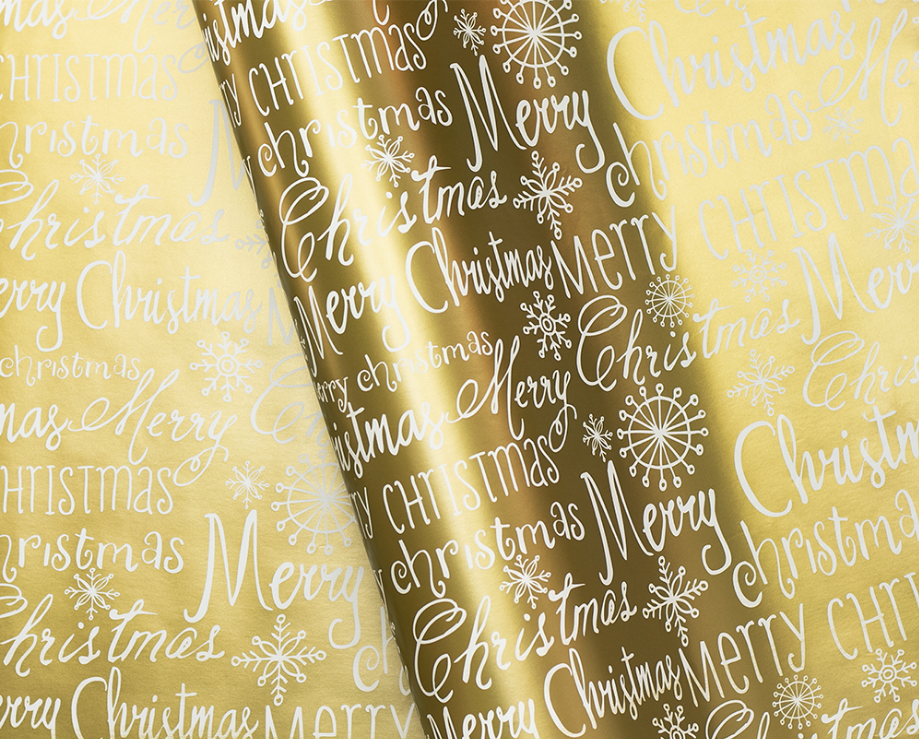 Merry
Christmas
CHRISTMAS
christmas
Merry
Christmas
Merry Christmas
christmas
Merry
CHRISTMAS
christmas
Merry
Christmas
Merry Christmas Merry
christmas
Merry
CHRISTMAS
Merry
christmas
Christmas
Merry Christmas Merry
Christmas
merry christmas
Christmas Merry
CHRISTMAS
christmas Merry
Christmas
Merry Christmas Merry
Christmas
christmas
CHRISTMAS
Merry
Christmas
Christmas
christmas
Merry